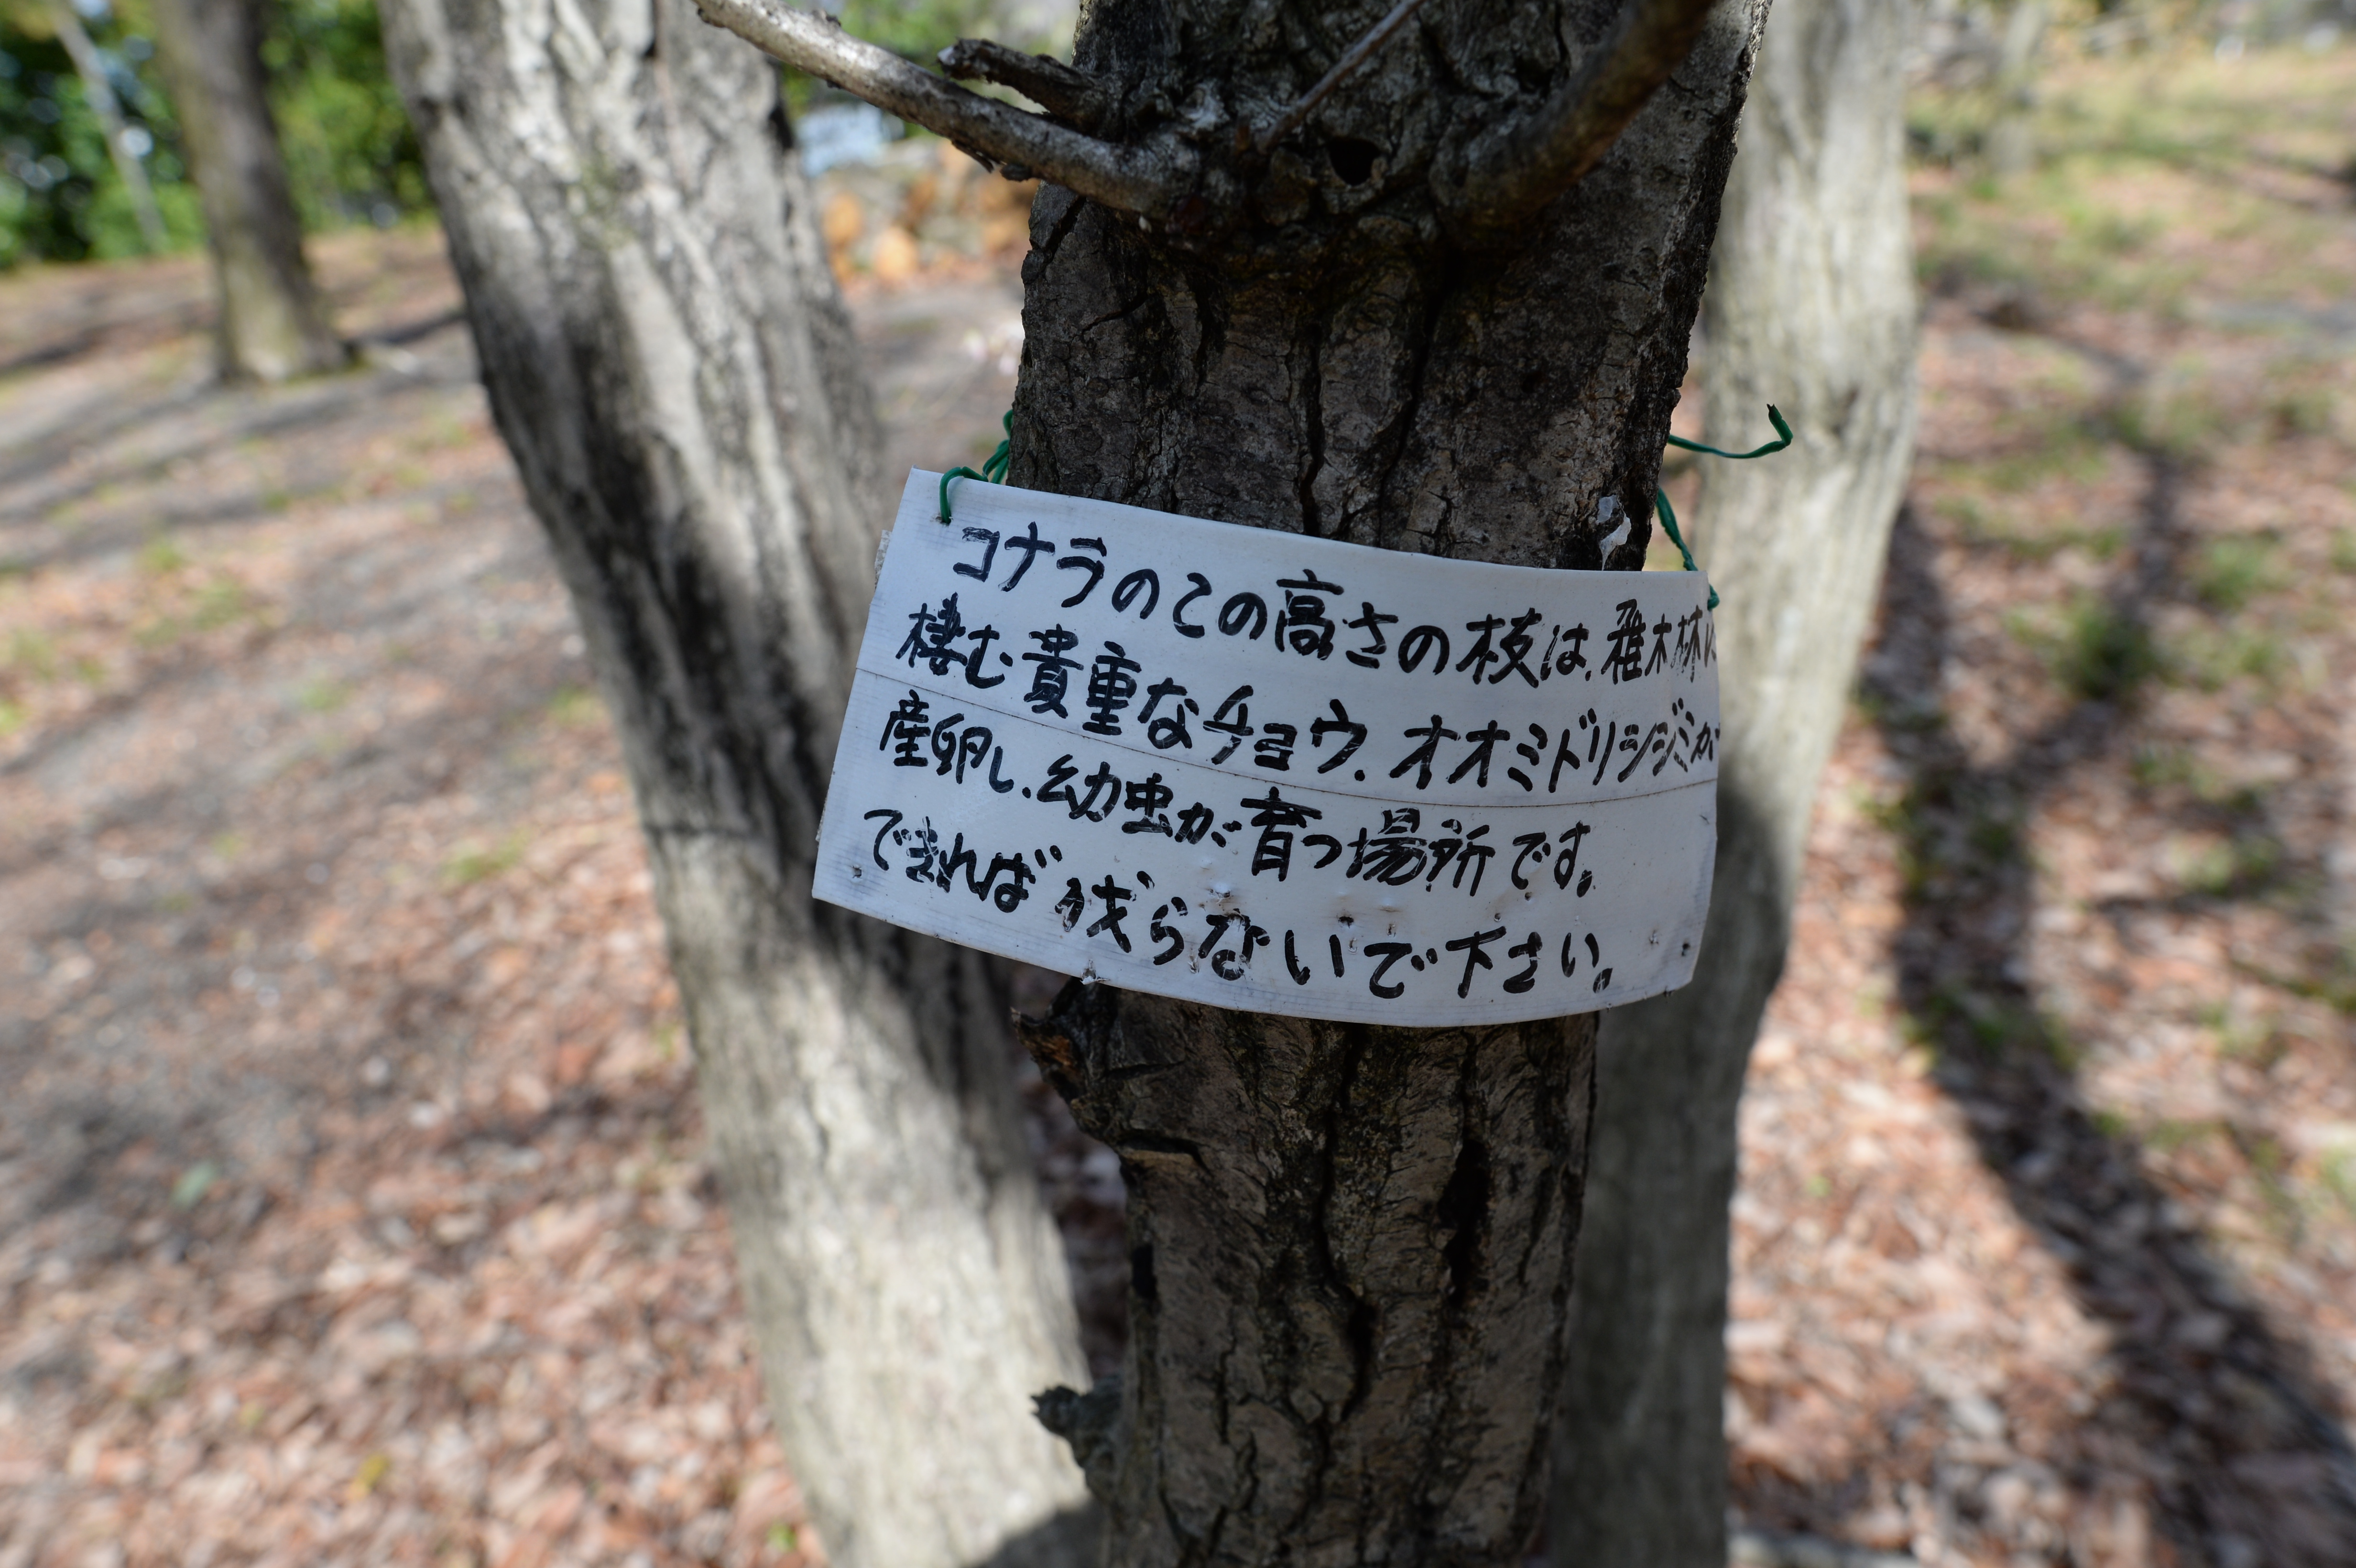 コナラのこの高さの枝は、雑木林に
棲む貴重なチョウ、オオミドリシジミが
産卵し、幼虫が育つ場所です。
できれば伐らないで下さい。